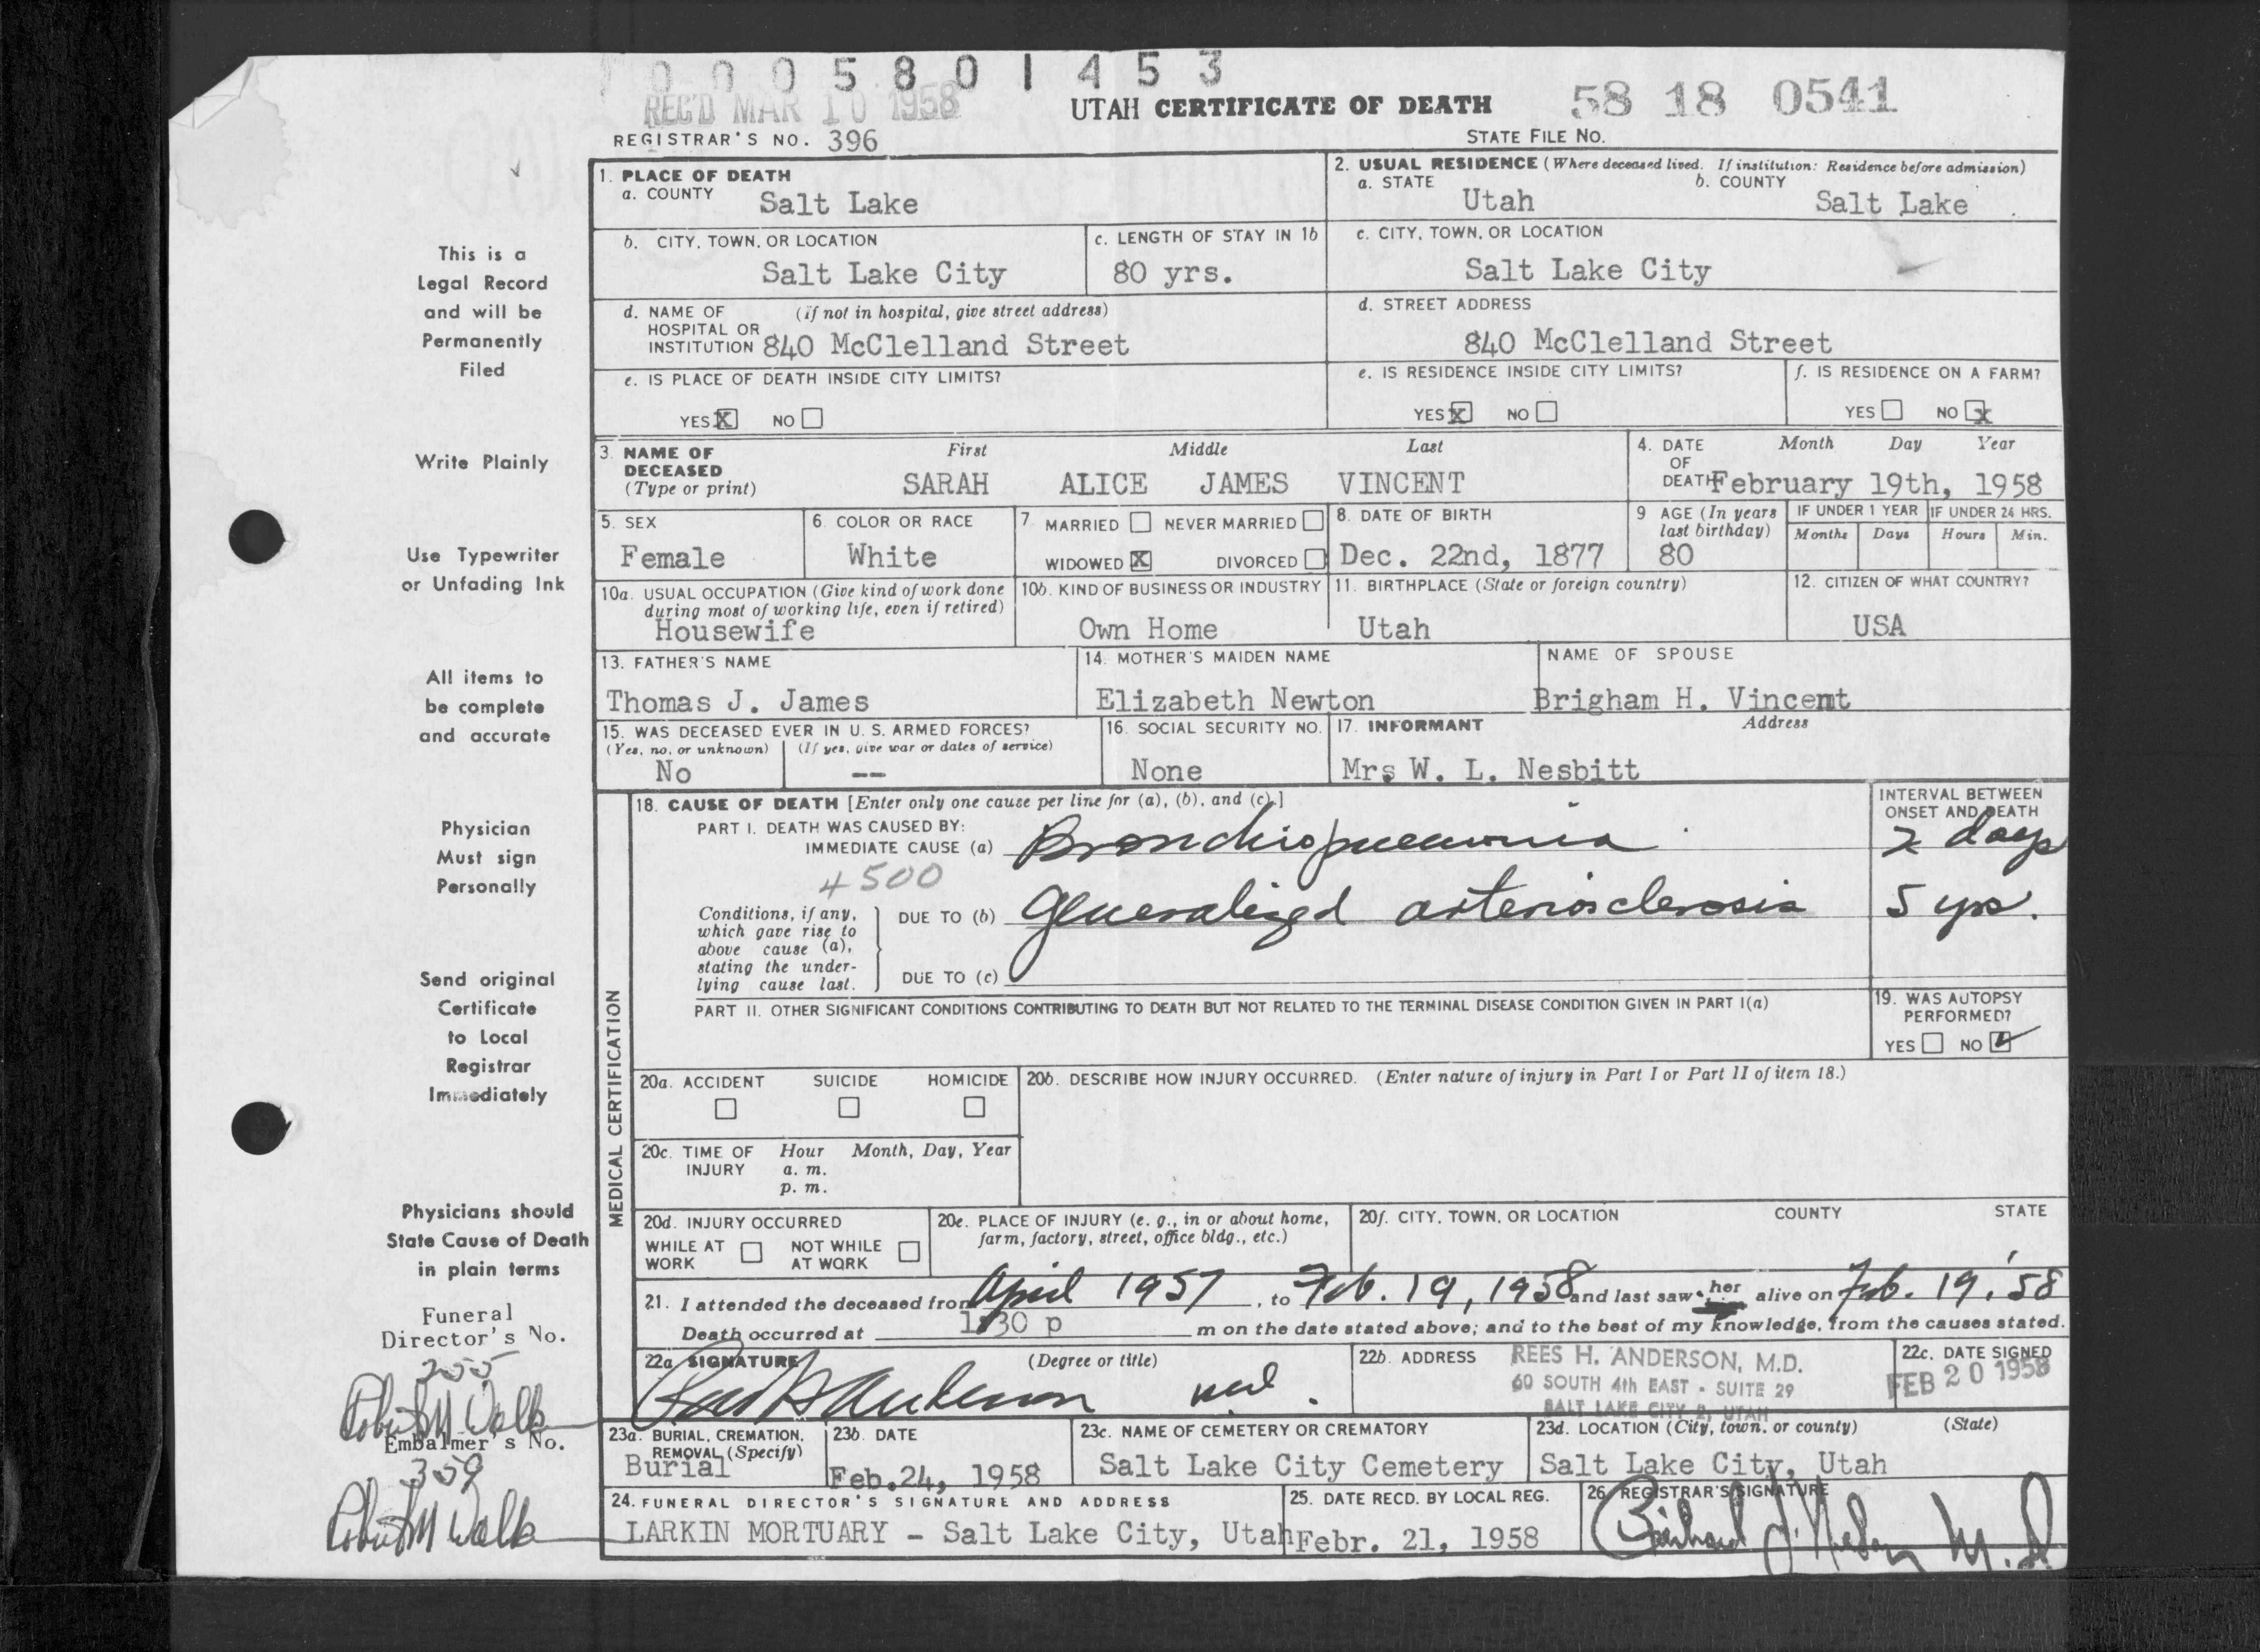 0 0 0 5 8 0 1 4 5 3
REC'D MAR 10 1958
UTAH CERTIFICATE OF DEATH
58 18 0541
REGISTRAR'S NO. 396
STATE FILE NO.
This is a
Legal Record
and will be
Permanently
Filed
Write Plainly
Use Typewriter
or Unfading Ink
All items to
be complete
and accurate
Physician
Must sign
Personally
Send original
Certificate
to Local
Registrar
Immediately
Physicians should
State Cause of Death
in plain terms
Funeral
Director's No.
255
Embalmer's No.
359
1. PLACE OF DEATH
a. COUNTY Salt Lake
2. USUAL RESIDENCE (Where deceased lived. If institution: Residence before admission)
a. STATE Utah b. COUNTY Salt Lake
b. CITY, TOWN, OR LOCATION
Salt Lake City
c. LENGTH OF STAY IN 1b
80 yrs.
c. CITY, TOWN, OR LOCATION
Salt Lake City
d. NAME OF (If not in hospital, give street address)
HOSPITAL OR
INSTITUTION 840 McClelland Street
d. STREET ADDRESS
840 McClelland Street
e. IS PLACE OF DEATH INSIDE CITY LIMITS?
YES X NO
e. IS RESIDENCE INSIDE CITY LIMITS?
YES X NO
f. IS RESIDENCE ON A FARM?
YES NO X
3. NAME OF First Middle Last
DECEASED
(Type or print) SARAH ALICE JAMES VINCENT
4. DATE Month Day Year
OF
DEATH February 19th, 1958
5. SEX
Female
6. COLOR OR RACE
White
7. MARRIED NEVER MARRIED
WIDOWED X DIVORCED
8. DATE OF BIRTH
Dec. 22nd, 1877
9 AGE (In years
last birthday)
80
IF UNDER 1 YEAR IF UNDER 24 HRS.
Months Days Hours Min.
10a. USUAL OCCUPATION (Give kind of work done
during most of working life, even if retired)
Housewife
10b. KIND OF BUSINESS OR INDUSTRY
Own Home
11. BIRTHPLACE (State or foreign country)
Utah
12. CITIZEN OF WHAT COUNTRY?
USA
13. FATHER'S NAME
Thomas J. James
14. MOTHER'S MAIDEN NAME
Elizabeth Newton
NAME OF SPOUSE
Brigham H. Vincent
15. WAS DECEASED EVER IN U. S. ARMED FORCES?
(Yes, no, or unknown) (If yes, give war or dates of service)
No --
16. SOCIAL SECURITY NO.
None
17. INFORMANT Address
Mrs W. L. Nesbitt
MEDICAL CERTIFICATION
18. CAUSE OF DEATH [Enter only one cause per line for (a), (b), and (c).]
INTERVAL BETWEEN
ONSET AND DEATH
PART I. DEATH WAS CAUSED BY:
IMMEDIATE CAUSE (a) Bronchiopneumonia 2 days
4500
Conditions, if any,
which gave rise to
above cause (a),
stating the under-
lying cause last.
DUE TO (b) Generalized arteriosclerosis 5 yrs.
DUE TO (c)
PART II. OTHER SIGNIFICANT CONDITIONS CONTRIBUTING TO DEATH BUT NOT RELATED TO THE TERMINAL DISEASE CONDITION GIVEN IN PART I(a)
19. WAS AUTOPSY
PERFORMED?
YES NO
20a. ACCIDENT SUICIDE HOMICIDE
20b. DESCRIBE HOW INJURY OCCURRED. (Enter nature of injury in Part I or Part II of item 18.)
20c. TIME OF Hour Month, Day, Year
INJURY a. m.
p. m.
20d. INJURY OCCURRED
WHILE AT NOT WHILE
WORK AT WORK
20e. PLACE OF INJURY (e. g., in or about home,
farm, factory, street, office bldg., etc.)
20f. CITY, TOWN, OR LOCATION COUNTY STATE
21. I attended the deceased from April 1957, to Feb. 19, 1958 and last saw her alive on Feb. 19, '58
Death occurred at 1:30 p m on the date stated above; and to the best of my knowledge, from the causes stated.
22a. SIGNATURE (Degree or title)
Rees H Anderson M.D.
22b. ADDRESS REES H. ANDERSON, M.D.
60 SOUTH 4th EAST - SUITE 29
SALT LAKE CITY 2, UTAH
22c. DATE SIGNED
FEB 20 1958
23a. BURIAL, CREMATION,
REMOVAL (Specify)
Burial
23b. DATE
Feb.24, 1958
23c. NAME OF CEMETERY OR CREMATORY
Salt Lake City Cemetery
23d. LOCATION (City, town, or county) (State)
Salt Lake City, Utah
24. FUNERAL DIRECTOR'S SIGNATURE AND ADDRESS
LARKIN MORTUARY - Salt Lake City, Utah
25. DATE RECD. BY LOCAL REG.
Febr. 21, 1958
26. REGISTRAR'S SIGNATURE
M.D